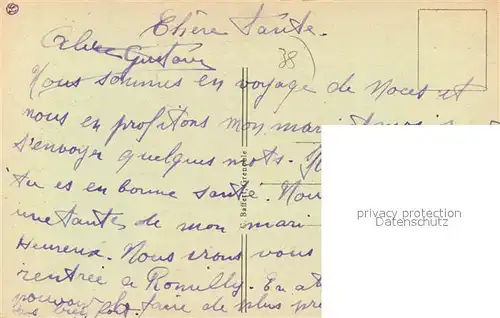 Chère Tante.
Gustave
38
Nous sommes en voyage de Noces et
nous en profitons mon mari
t'envoyer quelques mots.
tu es en bonne santé. Nou
une tantes de mon mari
Heureux. Nous irons vous
rentrée à Romilly. En at
pouvoir le faire de plus prè
bien fort.
C. Baffert, Grenoble
privacy protection
Datenschutz